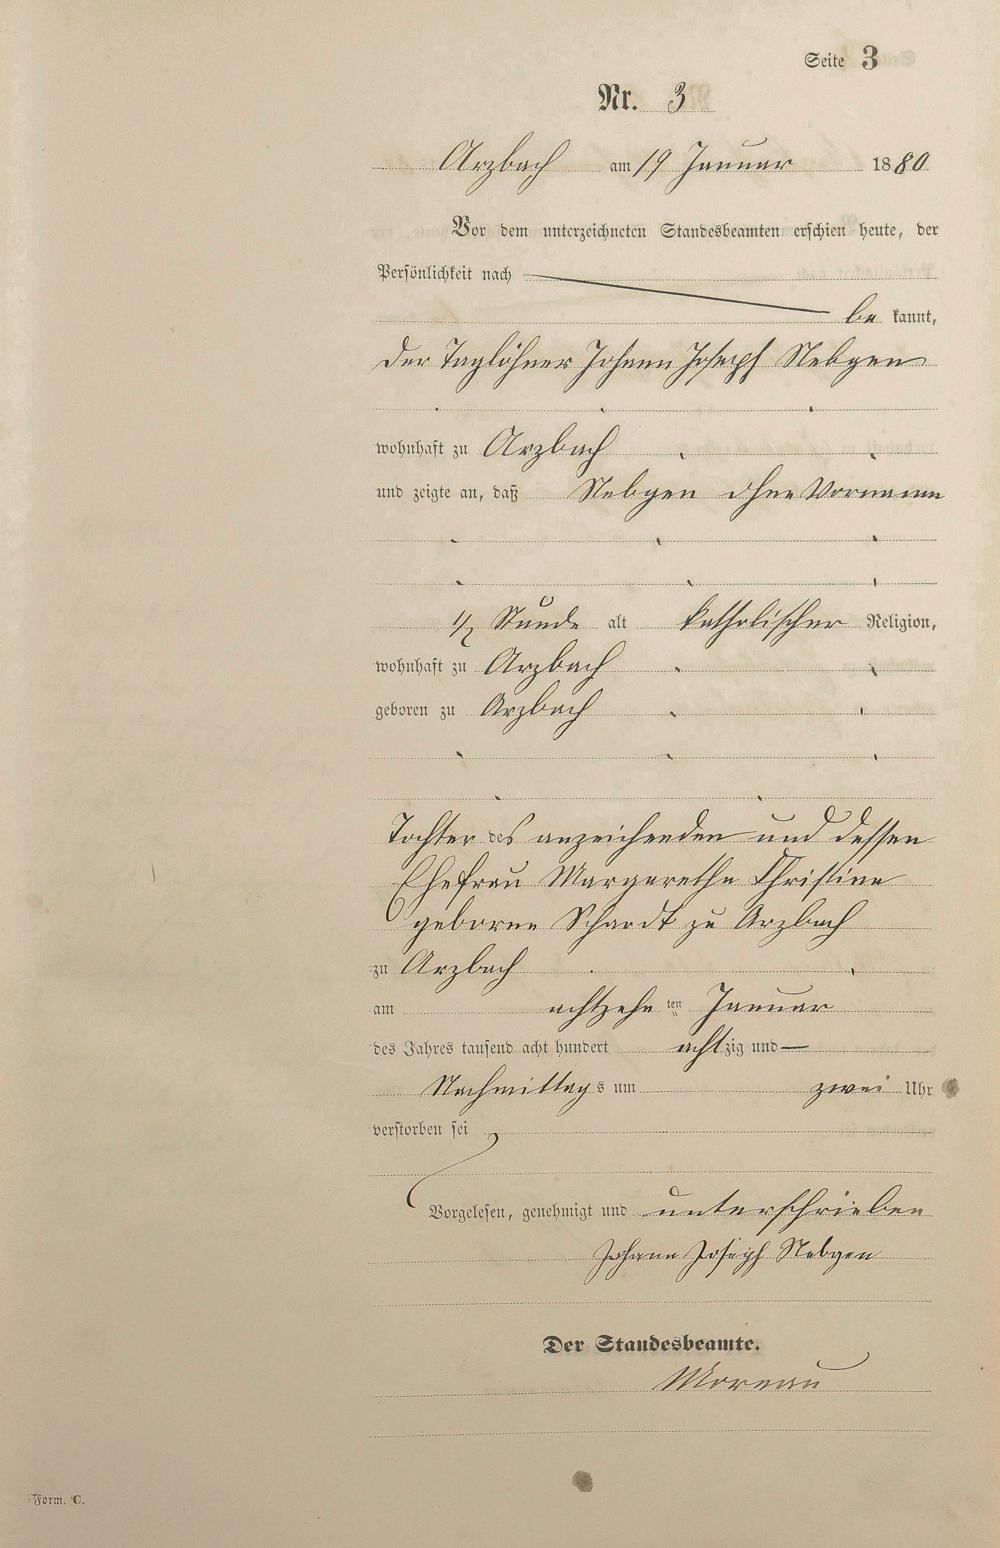 Seite 3
Nr. 3
Arzbach am 19 Januar 1880
Vor dem unterzeichneten Standesbeamten erschien heute, der
Persönlichkeit nach
be kannt,
der Taglöhner Johann Joseph Nebgen
wohnhaft zu Arzbach
und zeigte an, daß Nebgen ohne Vornamen
1/2 Stunde alt katholischer Religion,
wohnhaft zu Arzbach
geboren zu Arzbach
Tochter des anzeichenden und dessen
Ehefrau Margaretha Christine
geborne Schardt zu Arzbach
zu Arzbach
am achtzehn ten Januar
des Jahres tausend acht hundert achtzig und —
Nachmittags um zwei Uhr
verstorben sei
Vorgelesen, genehmigt und unterschrieben
Johann Joseph Nebgen
Der Standesbeamte.
Moreau
Form. C.